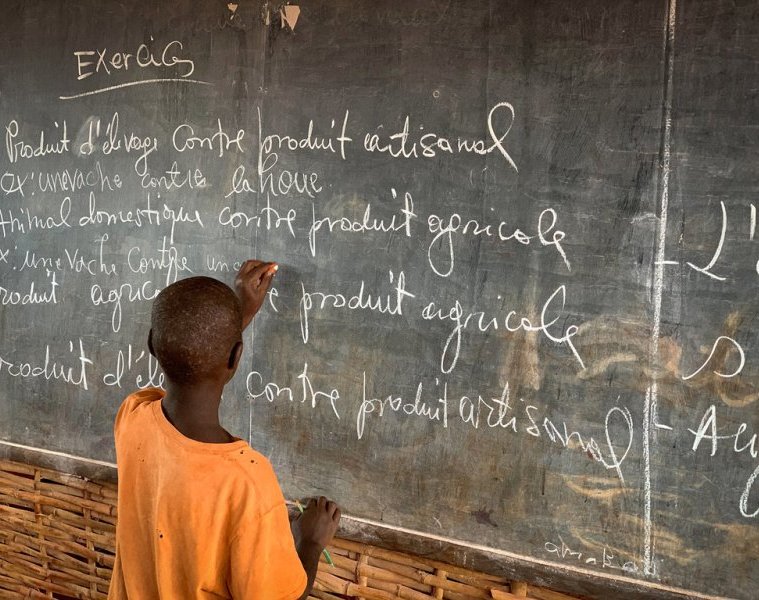 Exercices
Produit d'élevage contre produit artisanal
ex: une vache contre la houe.
Animal domestique contre produit agricole
ex: une vache contre un
produit agric e produit agricole
produit d'éle contre produit artisanal
- L'
s
- Ag